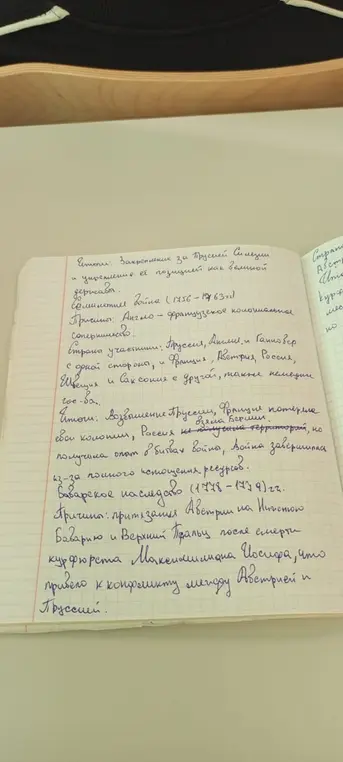 Итоги: Закрепление за Пруссией Силезии
и укрепление её позиций как великой
державы.
Семилетняя война (1756 - 1763гг)
Причины: Англо - французское колониальное
соперничество.
Страны участники: Пруссия, Англия и Ганновер
с одной стороны, и Франция, Австрия, Россия,
Швеция и Саксония с другой, также немецкие
гос-ва.
Итоги: Возвышение Пруссии, Франция потеряла
взяла Берлин
свои колонии, Россия не получила территорий, но
получила опыт в битвах войны, Война завершилась
из-за полного истощения ресурсов.
Баварское наследство (1778 - 1779)гг.
Причина: притязания Австрии на Нижнюю
Баварию и Верхний Пфальц после смерти
курфюрста Максимилиана Иосифа, что
привело к конфликту между Австрией и
Пруссией.
Стран
Австр
Итог
курф
мес
но